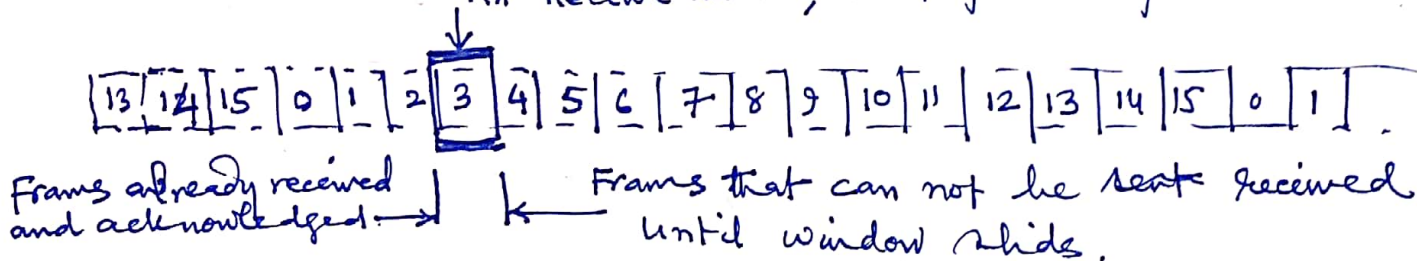 13 14 15 0 1 2 3 4 5 6 7 8 9 10 11 12 13 14 15 0 1
Frams already received
and acknowledged.
Frams that can not be received
until window slids.